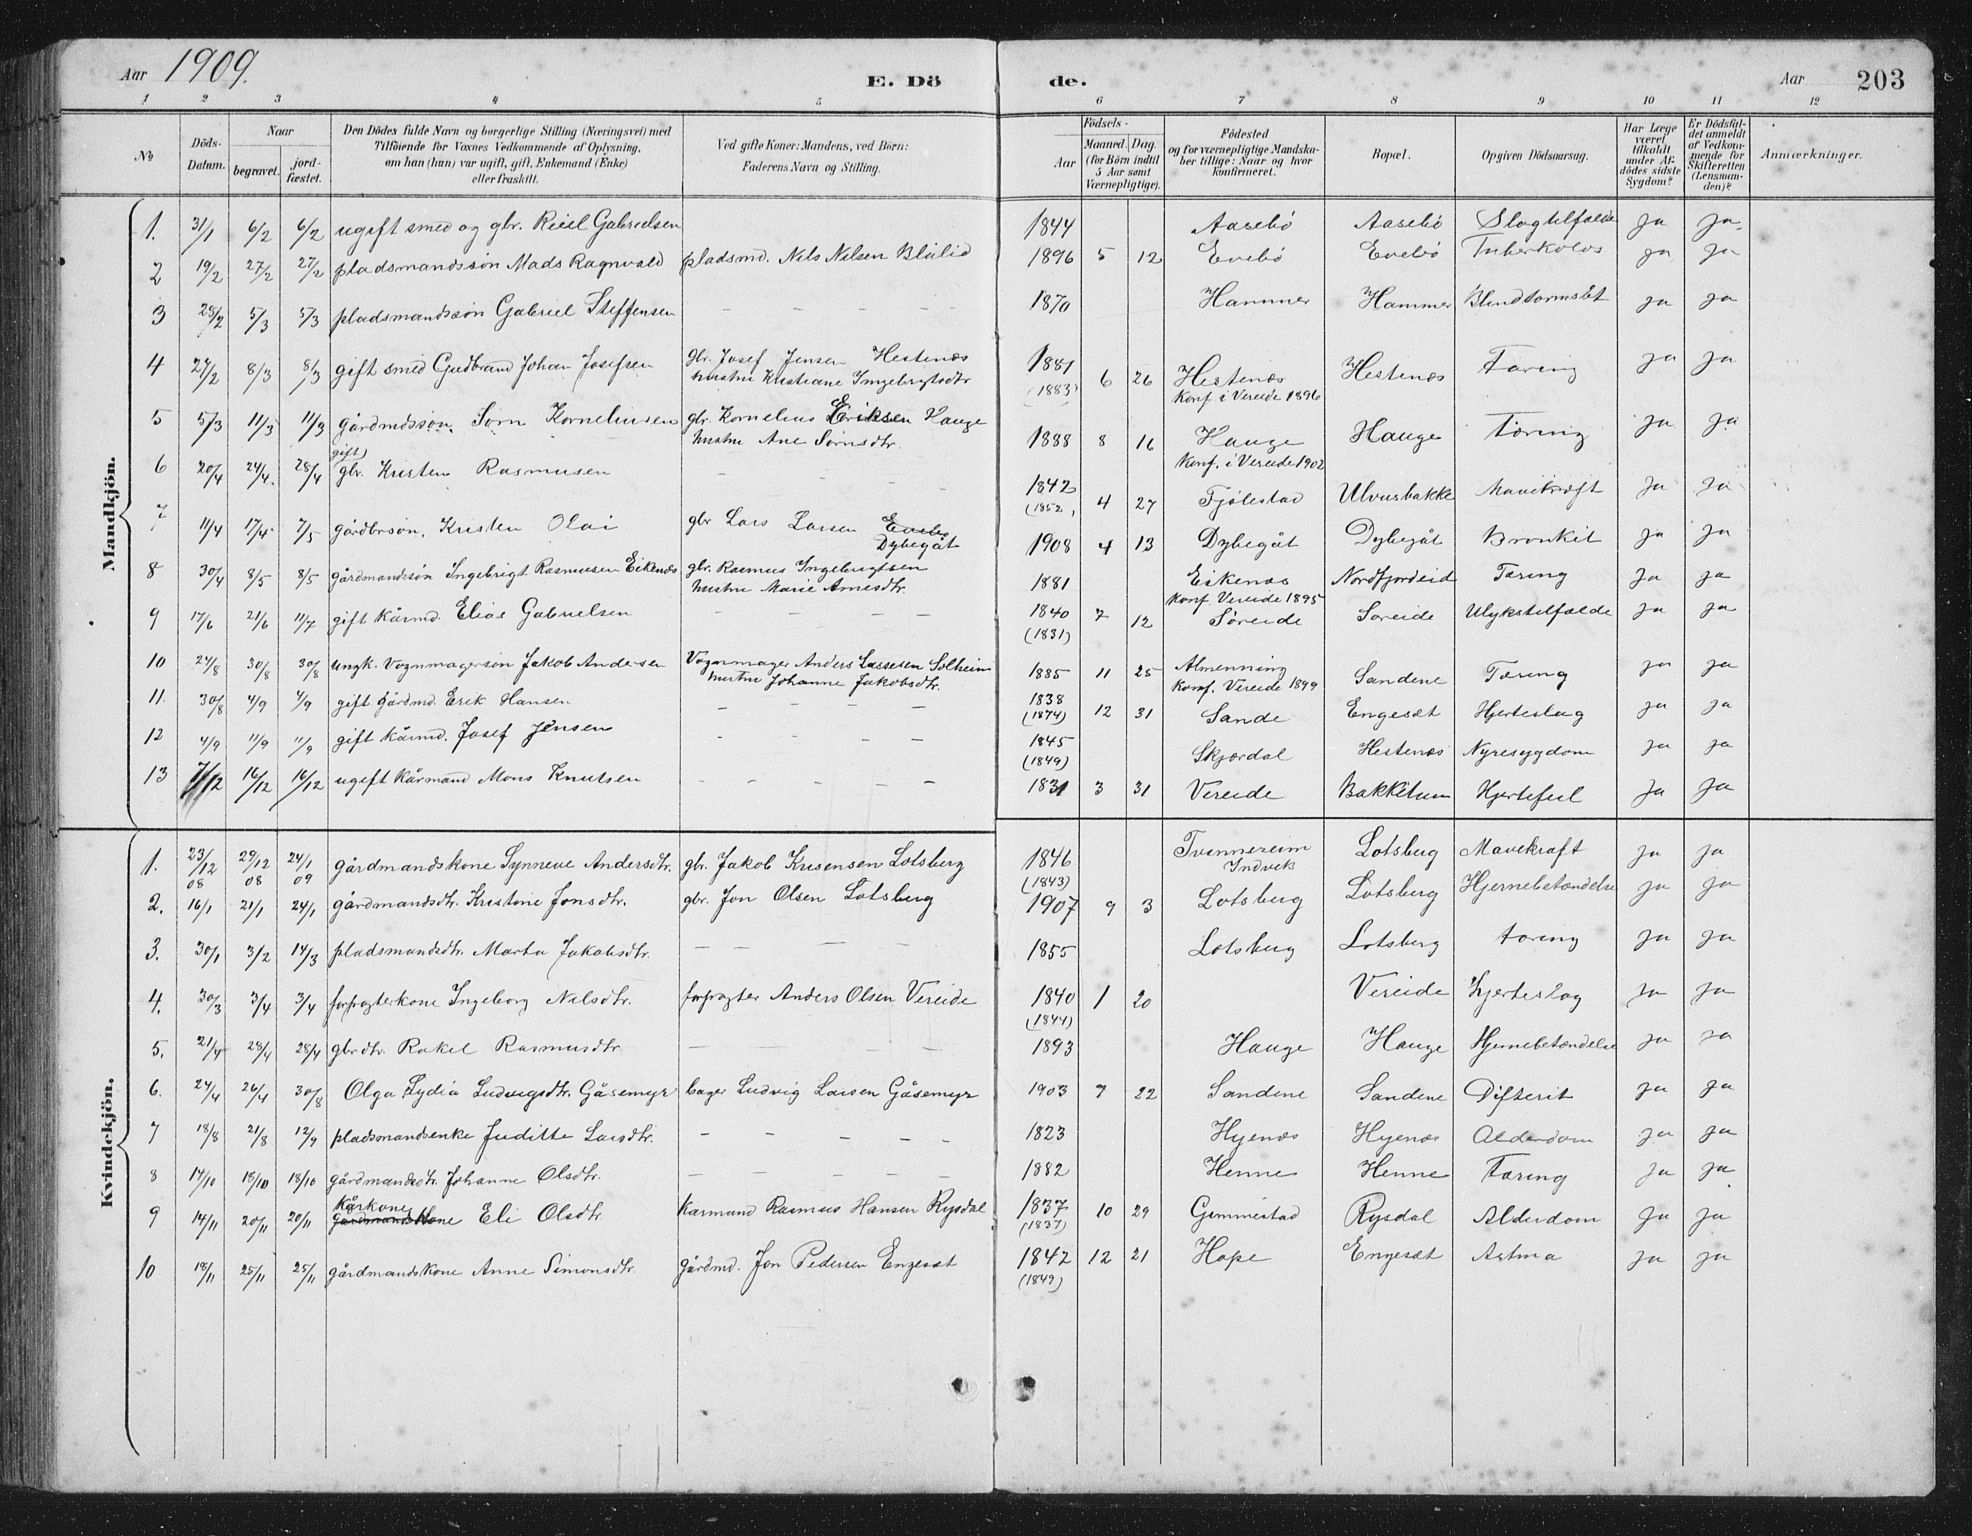 Aar 1909. E. Dö de. Aar 203
1 2 3 4 5 6 7 8 9 10 11 12
No
Döds-Datum.
Naar
begravet.
jord-fæstet.
Den Dödes fulde Navn og borgerlige Stilling (Næringsvei) med
Tilföiende for Voxnes Vedkommende af Oplysning,
om han (hun) var ugift, gift, Enkemand (Enke)
eller fraskilt.
Ved gifte Koner: Mandens, ved Börn:
Faderens Navn og Stilling.
Födsels-
Aar
Maaned. Dag.
(for Börn indtil
5 Aar samt
Værnepligtige).
Födested
og for værnepligtige Mandska-
ber tillige: Naar og hvor
konfirmeret.
Bopæl.
Opgiven Dödsaarsag.
Har Læge
været
tilkaldt
under Af-
dödes sidste
Sygdom?
Er Dödsfal-
det anmeldt
af Vedkom-
mende for
Skifteretten
(Lensman-
den)?
Anmærkninger.
Mandkjön.
1. 31/1 6/2 6/2 ugift smed og gbr. Reiel Gabrielsen 1844 Aasebö Aasebö Slagtilfælde Ja Ja
2 19/2 27/2 27/2 pladsmandssön Mads Ragnvald pladsmd. Nils Nilsen Blålid 1896 5 12 Evebö Evebö Tuberkolos ja ja
3 25/2 5/3 5/3 pladsmandssön Gabriel Steffensen – – – – 1870 Hammer Hammer Blindtarmsbet ja ja
4 27/2 8/3 8/3 gift smed Gudbrand Johan Josefsen gbr. Josef Jensen Hestenæs 1881 6 26 Hestenæs Hestenæs Tæring ja ja
hustru Kristiane Ingebrigtsdtr (1883) Konf i Vereide 1896
5 5/3 11/3 11/3 gårdmdssön, Sörn Korneliussen gbr. Kornelius Eriksen Hauge 1888 8 16 Hauge Hauge Tæring ja ja
hustru Ane Sörnsdtr. Konf. i Vereide 1902
gift)
6 20/4 24/4. 28/4 gbr. Kristen Rasmusen – – – – 1842 4 27 Fjölestad Ulvusbakke Mavekræft Ja Ja
(1852)
7 11/4 17/4 7/5 gårdbrsön, Kristen Olai gbr Lars Larsen Evebö 1908 4 13 Dybegåt Dybegåt Bronkit ja ja
Dybegåt
8 30/4 8/5 8/5 gårdmandssön Ingebrigt Rasmusen Eikenæs gbr. Rasmus Ingebrigtsen 1881 Eikenæs Nordfjordeid Tæring Ja ja
hustru Marie Arnesdtr. Konf. Vereide 1895
9 17/6 21/6 11/7 gift kårmd. Elias Gabrielsen – – – – 1840 7 12 Söreide Soreide Ulykstilfælde ja ja
(1831)
10 24/8 30/8 30/8 ungk. vognmagersön Jakob Andersen Vognmager Anders Lassesen Solheim 1885 11 25 Almenning Sandene Tæring ja ja
hustru Johanne Jakobsdtr. Konf. Vereide 1899
11. 30/8 4/9 4/9 gift gårdmd. Erik Hansen – – – – 1838 12 31 Sande Engesæt Hjerteslag ja ja
(1874)
12 4/9 11/9 11/9 gift kårmd. Josef Jensen – – – – 1845 Skjærdal Hestenæs Nyresygdom ja ja
(1849)
13 7/12 16/12 16/12 ugift kårmand Mons Knutsen – – – – 1831 3 31 Vereide Bakketun Hjertefeil Ja ja
Kvindekjön.
1. 23/12 29/12 24/1 gårdmandskone Synneve Andersdtr. gbr. Jakob Kristensen Lotsberg 1846 Tvinnereim Lotsberg Mavekræft ja ja
08 08 09 (1843) Indvik
2. 16/1 21/1 24/1 gårdmandsdtr. Kristine Jonsdtr. gbr. Jon Olsen Lotsberg 1907 9 3 Lotsberg Lotsberg Hjernebetændelse ja ja
3. 30/1 3/2 14/3 pladsmandsdtr. Marta Jakobsdtr. – – – 1855 Lotsberg Lotsberg tæring ja ja
4. 30/3 3/4 3/4 forpagterkone Ingeborg Nilsdtr. forpagter Anders Olsen Vereide 1840 1 20 Vereide Hjerteslag ja ja
(1844)
5. 21/4 28/4 28/4 gbrdtr. Rakel Rasmusdtr. – – – – 1893 Hauge Hauge Hjernebetændelse ja ja
6. 24/4 26/4 30/8 Olga Lydia Ludvigsdtr. Gåsemyr bager Ludvig Larsen Gåsemyr 1903 7 22 Sandene Sandene Difterit ja ja
7 18/8 21/8 12/9 pladsmandsenke Juditte Larsdtr. – – – – – 1823 Hyenæs Hyenæs Alderdom ja ja
8 14/10 18/10 18/10 gårdmandsdtr. Johanne Olsdtr. – – – – – 1882 Henne Henne Tæring ja ja
kårkone
9 14/11 20/11 20/11 gårdmandskone Eli Olsdtr Karmand Rasmus Hansen Rysdal 1837 10 29 Gimmestad Rysdal Alderdom Ja ja
(1837)
10 18/11 25/11 25/11 gårdmandskone Anne Simonsdtr. gårdmd. Jon Pedersen Engesæt 1842 12 21 Hope Engesæt Astma ja ja
(1849)